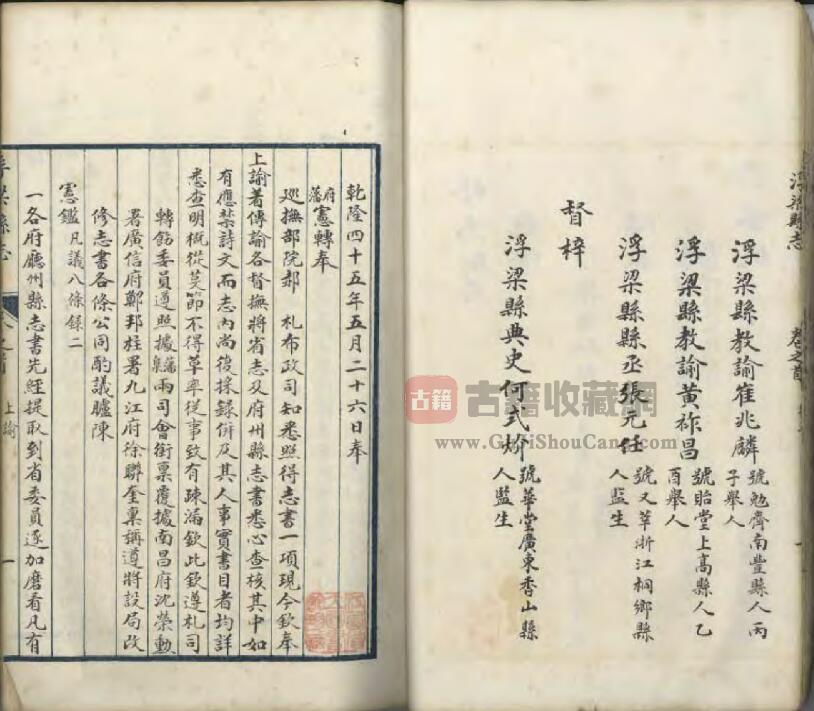 浮梁縣志
卷之首
浮梁縣教諭崔兆麟 號勉齋南豐縣人丙子舉人
浮梁縣教諭黃祚昌 號貽堂上高縣人乙酉舉人
浮梁縣縣丞張元任 號又莘浙江桐鄉縣人監生
督梓
浮梁縣典史何式 號華堂廣東香山縣人監生
乾隆四十五年五月二十六日奉
府藩憲轉奉
巡撫部院郝 札布政司知悉照得志書一項現今欽奉
上諭著傳諭各督撫將省志及府州縣志書悉心查核其中如
有應禁詩文而志內尚復採錄併及其人事實書目者均詳
悉查明概從芟節不得草率從事致有疎漏欽此欽遵札司
轉飭委員遵照據臬藩兩司會銜稟覆據南昌府沈榮勳
署廣信府鄭邦柱署九江府徐聯奎稟稱遵將設局改
修志書各條公同酌議臚陳
憲鑑凡議八條錄二
一各府廳州縣志書先經提取到省委員逐加磨看凡有
浮梁縣志
上諭
一
古籍
古籍收藏网
www.GujiShouCang.com